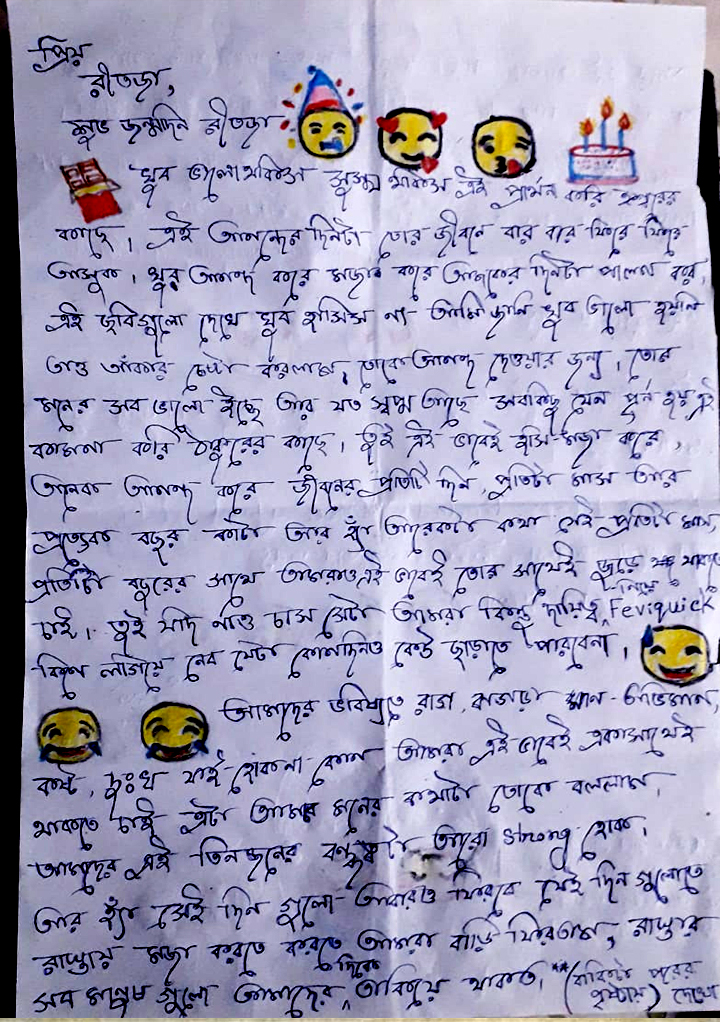 প্রিয়
রীতজা,
শুভ জন্মদিন রীতজা
খুব ভালো থাকিস সুস্থ থাকিস এই প্রার্থনা করি ঈশ্বরের
কাছে। এই আনন্দের দিনটা তোর জীবনে বার বার ফিরে ফিরে
আসুক। খুব আনন্দ করে মজা করে আজকের দিনটা পালন কর,
এই ছবিগুলো দেখে খুব হাসিস না আমি জানি খুব ভালো হয়নি
তাও আঁকার চেষ্টা করলাম, তোকে আনন্দ দেওয়ার জন্য। তোর
মনের সব ভালো ইচ্ছে আর যত স্বপ্ন আছে সবকিছু যেন পূর্ন হয় এই
কামনা করি ঠাকুরের কাছে। তুই এই ভাবেই হাসি-মজা করে,
অনেক আনন্দ করে জীবনের প্রতিটি দিন, প্রতিটা মাস আর
প্রত্যেক বছর কাটা আর হ্যাঁ আরেকটা কথা সেই প্রতিটা মাস,
প্রতিটা বছরের সাথে আমরাও এই ভাবেই তোর সাথেই জুড়ে থাকতে
চাই। তুই যদি নাও চাস সেটা আমরা কিন্তু দায়িত্ব নিয়ে Feviquick
দিয়ে লাগিয়ে নেব যেটা কোনদিনও কেউ ছাড়াতে পারবেনা।
আমাদের ভবিষ্যতে রাগ, ঝগড়া মান-অভিমান,
কষ্ট, দুঃখ যাই হোকনা কেন আমরা এই ভাবেই একসাথেই
থাকতে চাই এটা আমার মনের কথাটা তোকে বললাম,
আমাদের এই তিনজনের বন্ধুত্বটা আরো strong হোক।
আর হ্যাঁ সেই দিন গুলো আবারও ফিরবে যেই দিন গুলোতে
রাস্তায় মজা করতে করতে আমরা বাড়ি ফিরতাম, রাস্তার
সব মানুষ গুলো আমাদের দিকে তাকিয়ে থাকত। ** (বাকিটা পরের
পৃষ্ঠায়) দেখো